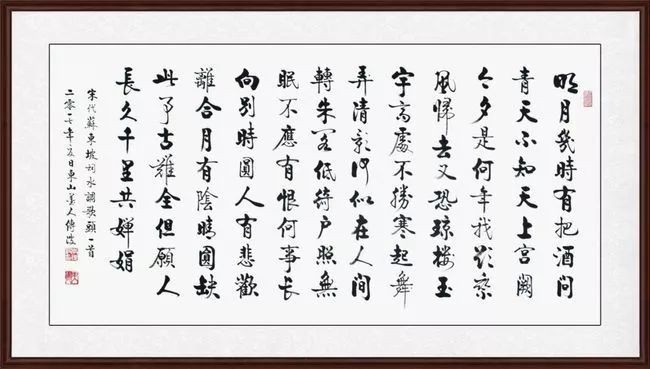 明月幾時有把酒問
青天不知天上宮闕
今夕是何年我欲乘
風歸去又恐瓊樓玉
宇高處不勝寒起舞
弄清影何似在人間
轉朱閣低綺戶照無
眠不應有恨何事長
向別時圓人有悲歡
離合月有陰晴圓缺
此事古難全但願人
長久千里共嬋娟
宋代蘇東坡詞水調歌頭一首
二零一七年日東山人